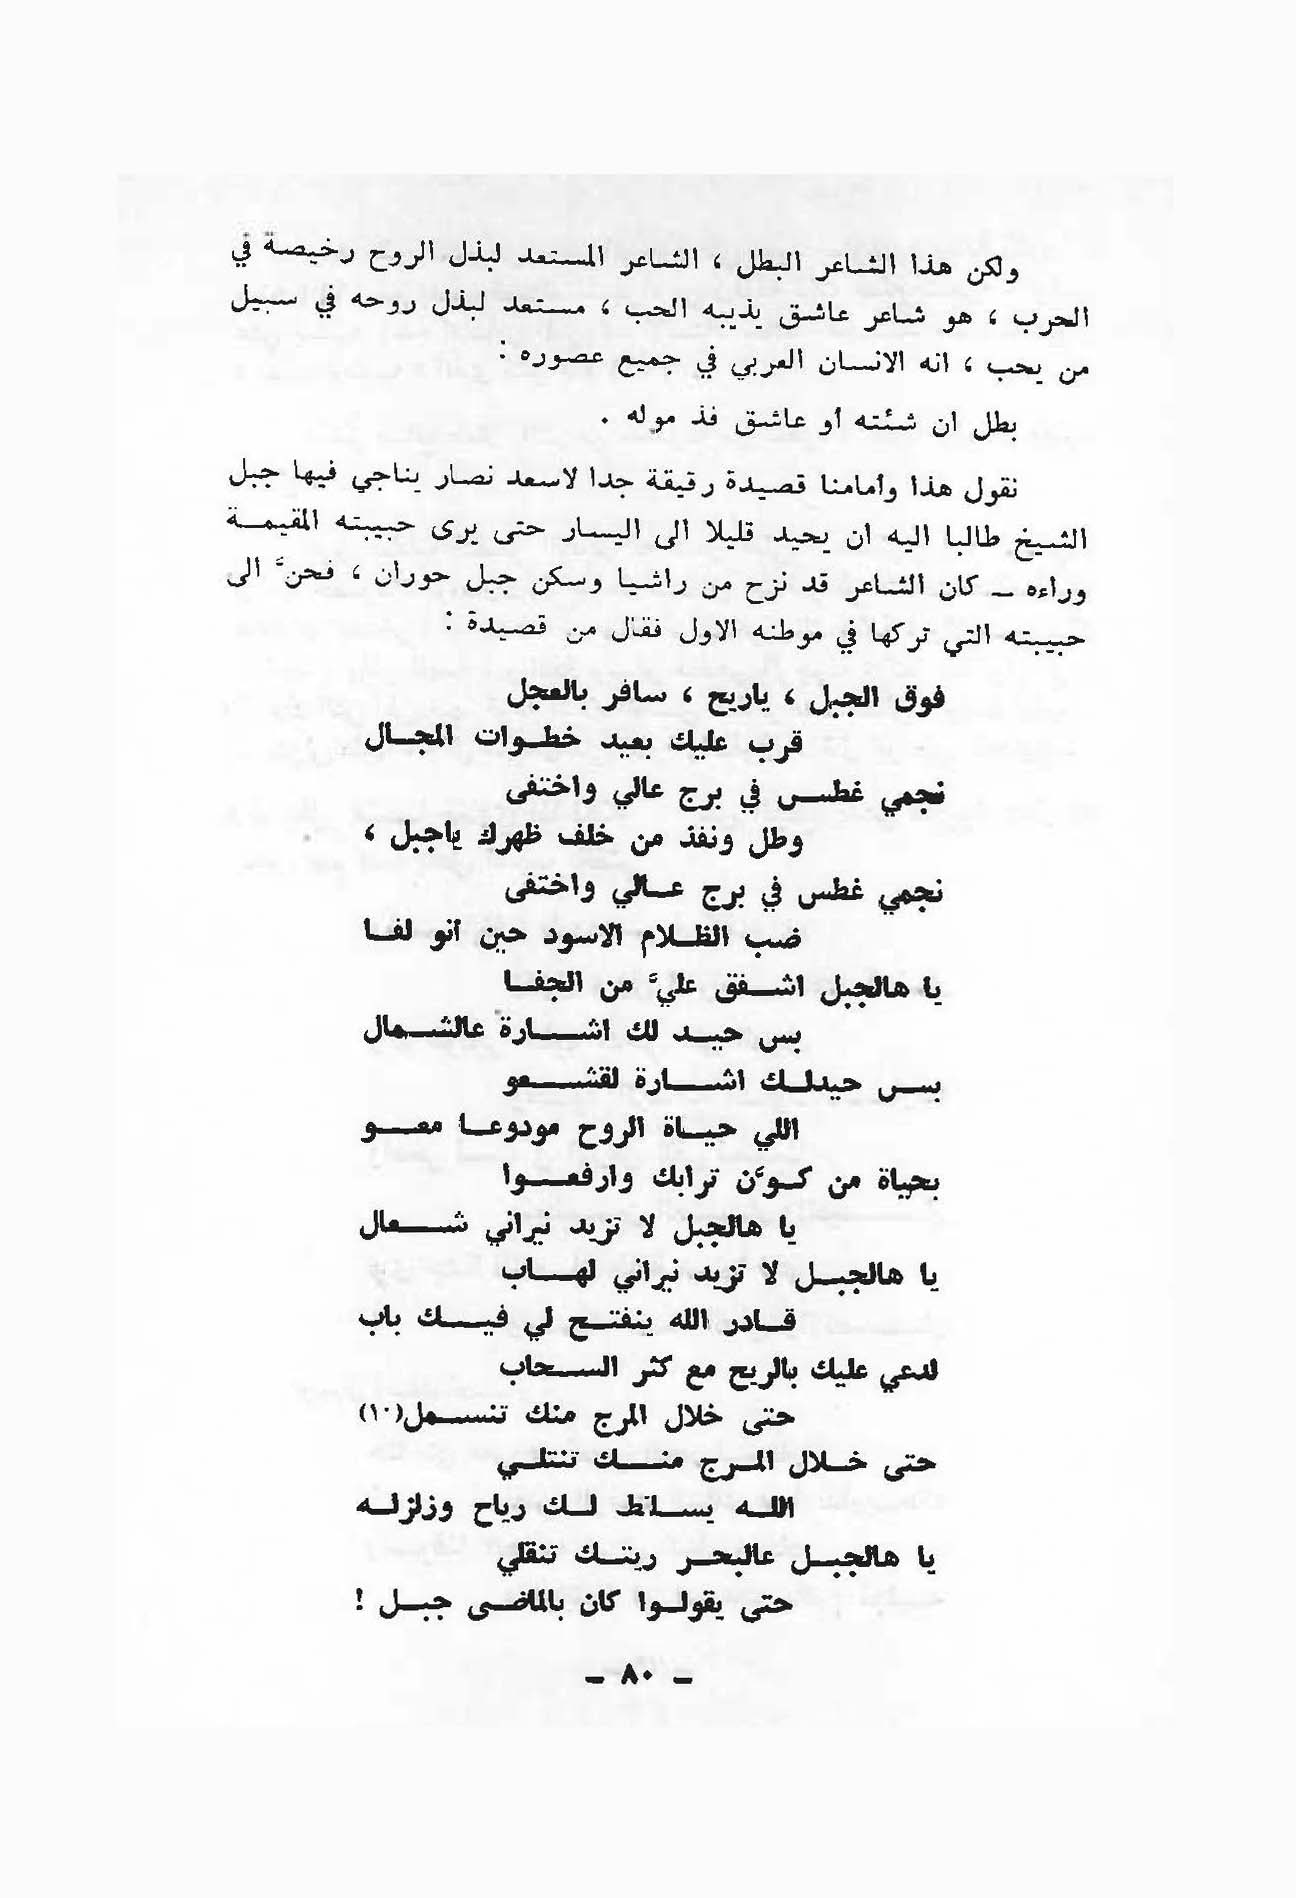 ولكن هذا الشاعر البطل ، الشاعر المستعد لبذل الروح رخيصة في
الحرب ، هو شاعر عاشق يذيبه الحب ، مستعد لبذل روحه في سبيل
من يحب ، انه الانسان العربي في جميع عصوره :
بطل ان شئته أو عاشق فذ موله .
نقول هذا وأمامنا قصيدة رقيقة جدا لاسعد نصار يناجي فيها جبل
الشيخ طالبا اليه ان يحيد قليلا الى اليسار حتى يرى حبيبته المقيمة
وراءه – كان الشاعر قد نزح من راشيا وسكن جبل حوران ، فحنَّ الى
حبيبته التي تركها في موطنه الاول فقال من قصيدة :
فوق الجبل ، ياريح ، سافر بالعجل
قرب عليك بعيد خطوات المجال
نجمي غطس في برج عالي واختفى
وطل ونفذ من خلف ظهرك ياجبل ،
نجمي غطس في برج عالي واختفى
ضب الظلام الاسود حين أنو لفا
يا هالجبل اشفق عليَّ من الجفا
بس حيد لك اشارة عالشمال
بس حيدلك اشارة لقشعو
اللي حياة الروح مودوعا معو
بحياة من كوَّن ترابك وارفعوا
يا هالجبل لا تزيد نيراني شعال
يا هالجبل لا تزيد نيراني لهاب
قادر الله ينفتح لي فيك باب
لدعي عليك بالريح مع كثر السحاب
حتى خلال المرج منك تنسمل(١٠)
حتى خلال المرج منك تنتلي
الله يسلط لك رياح وزلزله
يا هالجبل عالبحر ريتك تنقلي
حتى يقولوا كان بالماضى جبل !
– ٨٠ –